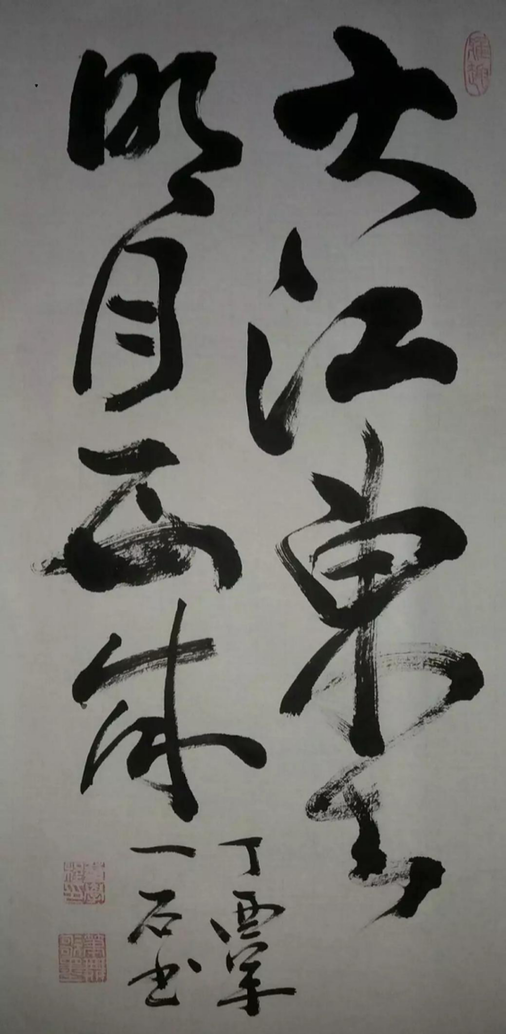 大江東去
明月西来
丁酉年
一石书